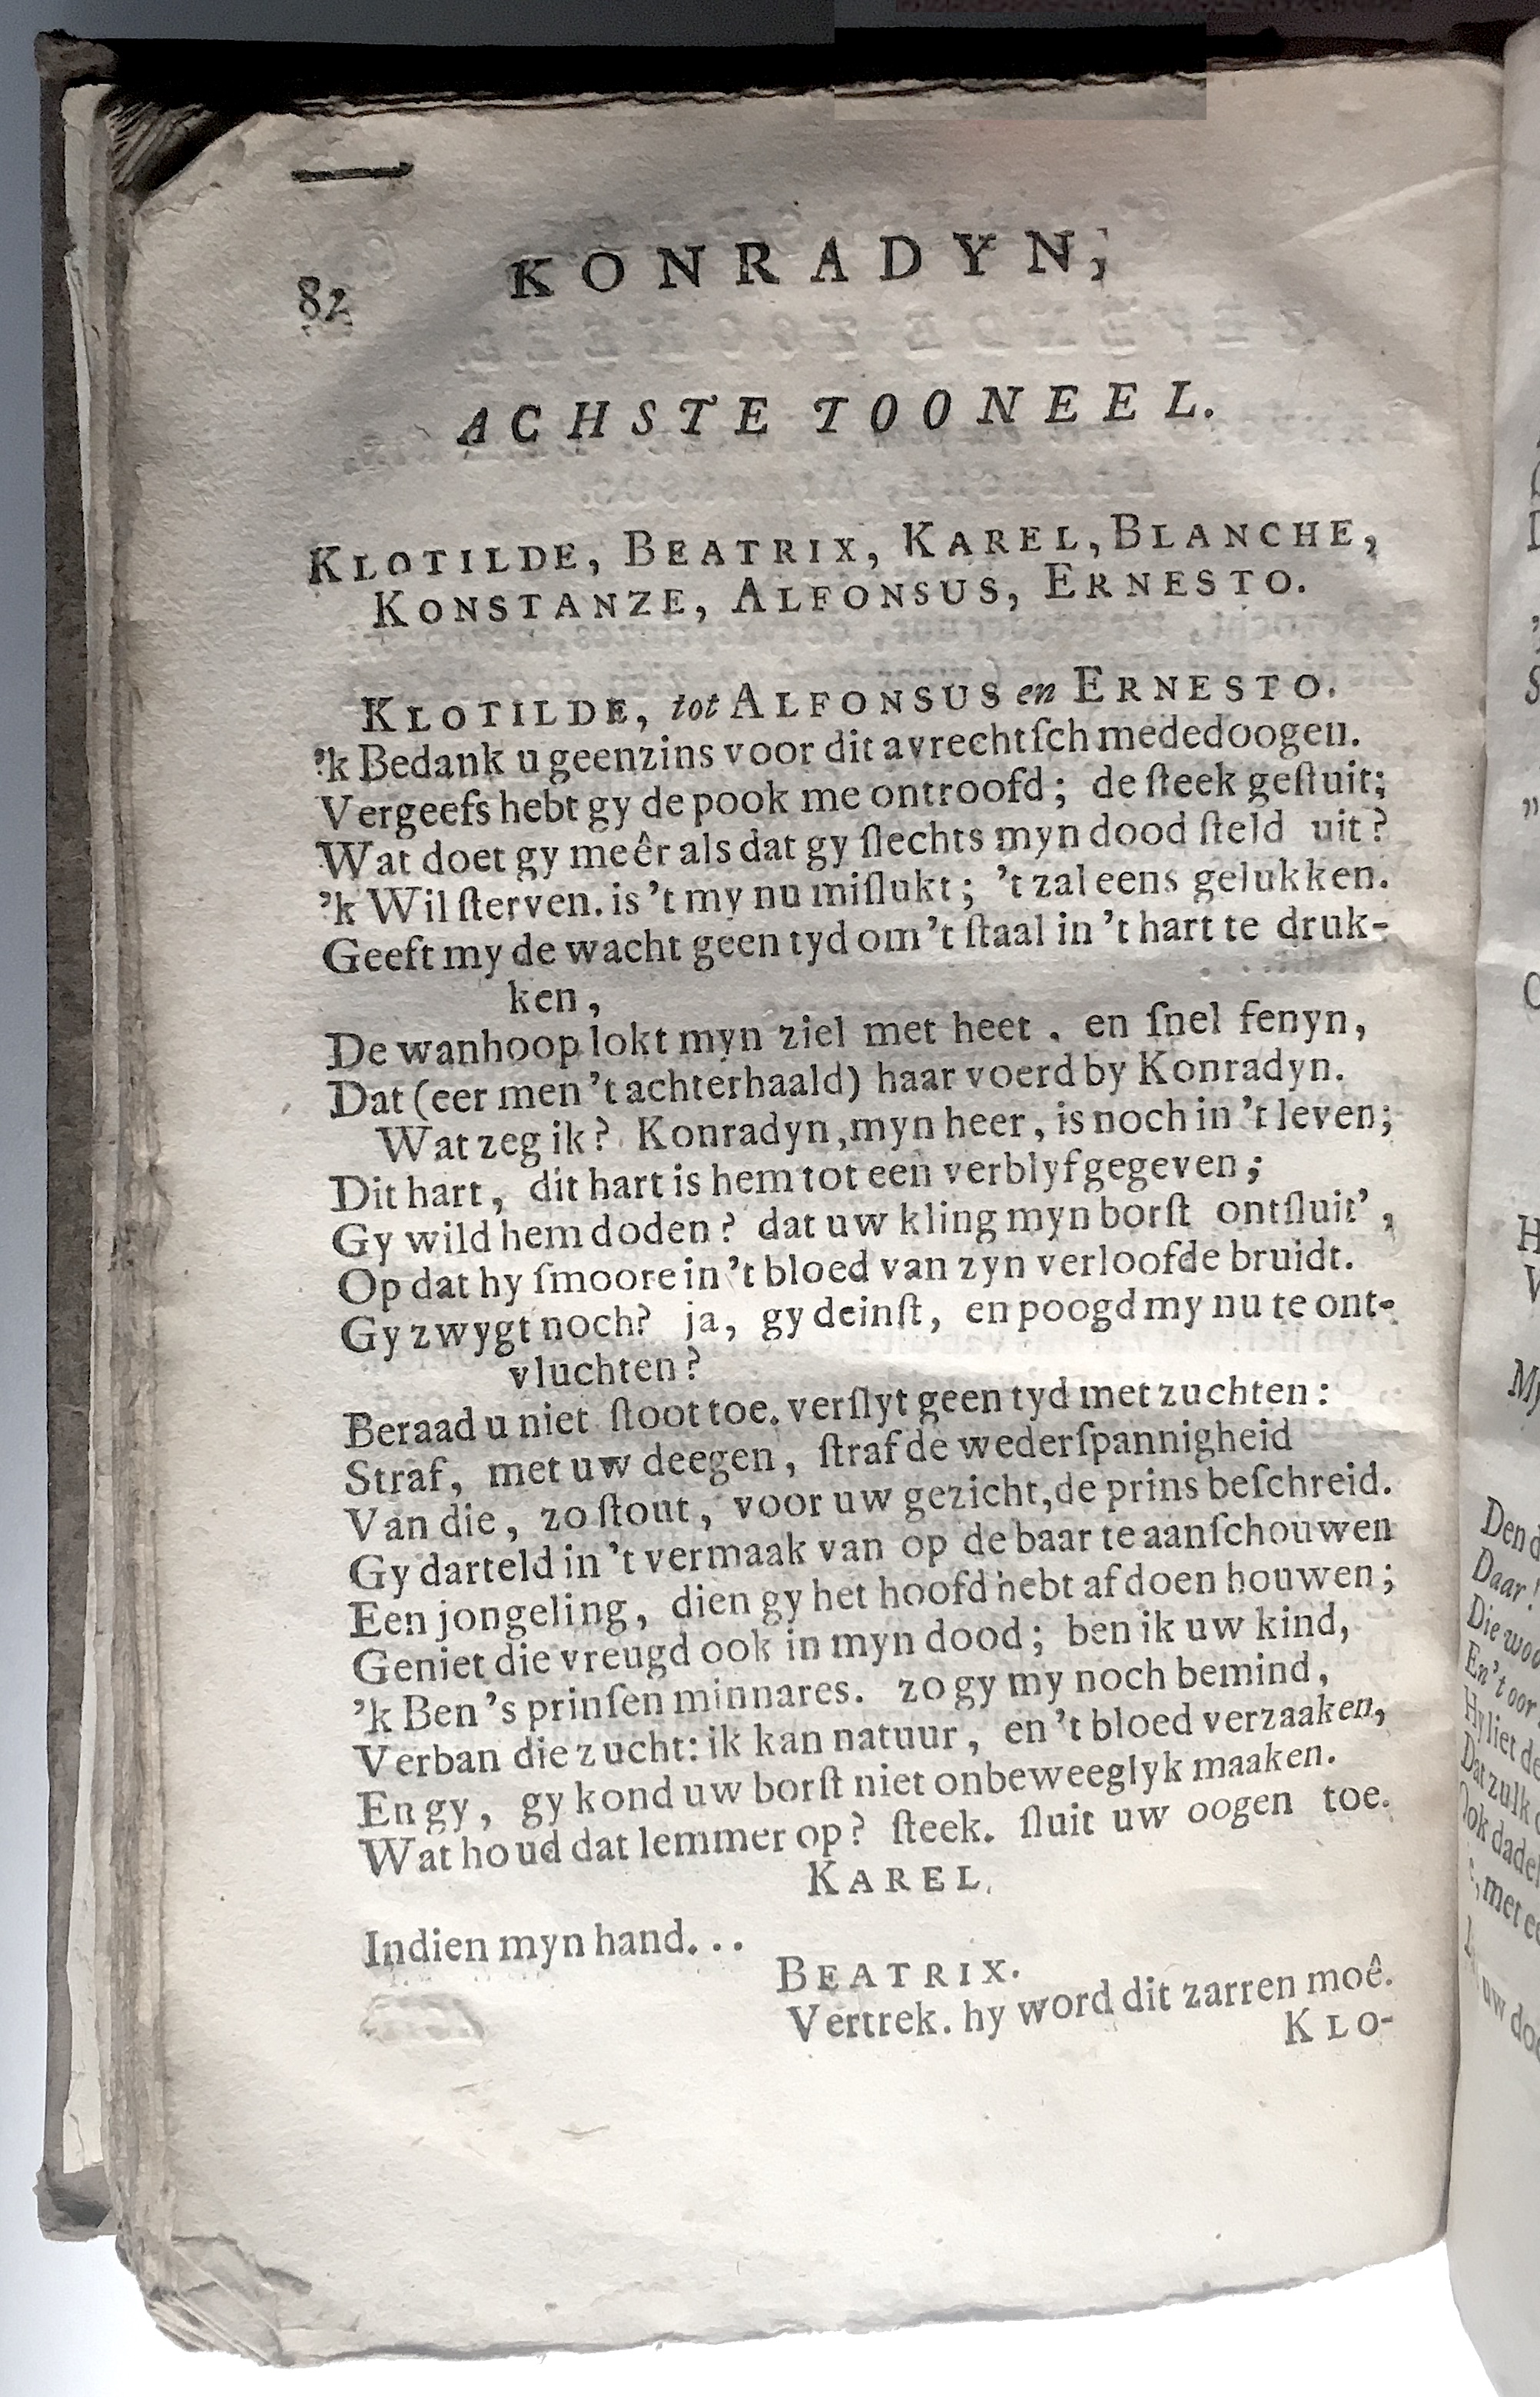 82 KONRADYN;
ACHSTE TOONEEL.
KLOTILDE, BEATRIX, KAREL, BLANCHE,
KONSTANZE, ALFONSUS, ERNESTO.
KLOTILDE, tot ALFONSUS en ERNESTO.
'k Bedank u geenzins voor dit avrechtſch mededoogen.
Vergeefs hebt gy de pook me ontroofd; de ſteek geſtuit;
Wat doet gy meêr als dat gy ſlechts myn dood ſteld uit?
'k Wil ſterven. is 't my nu miſlukt; 't zal eens gelukken.
Geeft my de wacht geen tyd om 't ſtaal in 't hart te druk-
ken,
De wanhoop lokt myn ziel met heet. en ſnel fenyn,
Dat (eer men 't achterhaald) haar voerd by Konradyn.
Wat zeg ik? Konradyn, myn heer, is noch in 't leven;
Dit hart, dit hart is hem tot een verblyf gegeven;
Gy wild hem doden? dat uw kling myn borſt ontſluit',
Op dat hy ſmoore in 't bloed van zyn verloofde bruidt.
Gy zwygt noch? ja, gy deinſt, en poogd my nu te ont-
vluchten?
Beraad u niet ſtoot toe. verſlyt geen tyd met zuchten:
Straf, met uw deegen, ſtraf de wederſpannigheid
Van die, zo ſtout, voor uw gezicht, de prins beſchreid.
Gy darteld in 't vermaak van op de baar te aanſchouwen
Een jongeling, dien gy het hoofd hebt af doen houwen;
Geniet die vreugd ook in myn dood; ben ik uw kind,
'k Ben 's prinſen minnares. zo gy my noch bemind,
Verban die zucht: ik kan natuur, en 't bloed verzaaken,
En gy, gy kond uw borſt niet onbeweeglyk maaken.
Wat houd dat lemmer op? ſteek. ſluit uw oogen toe.
KAREL.
Indien myn hand...
BEATRIX.
Vertrek. hy word dit zarren moê.
KLO-